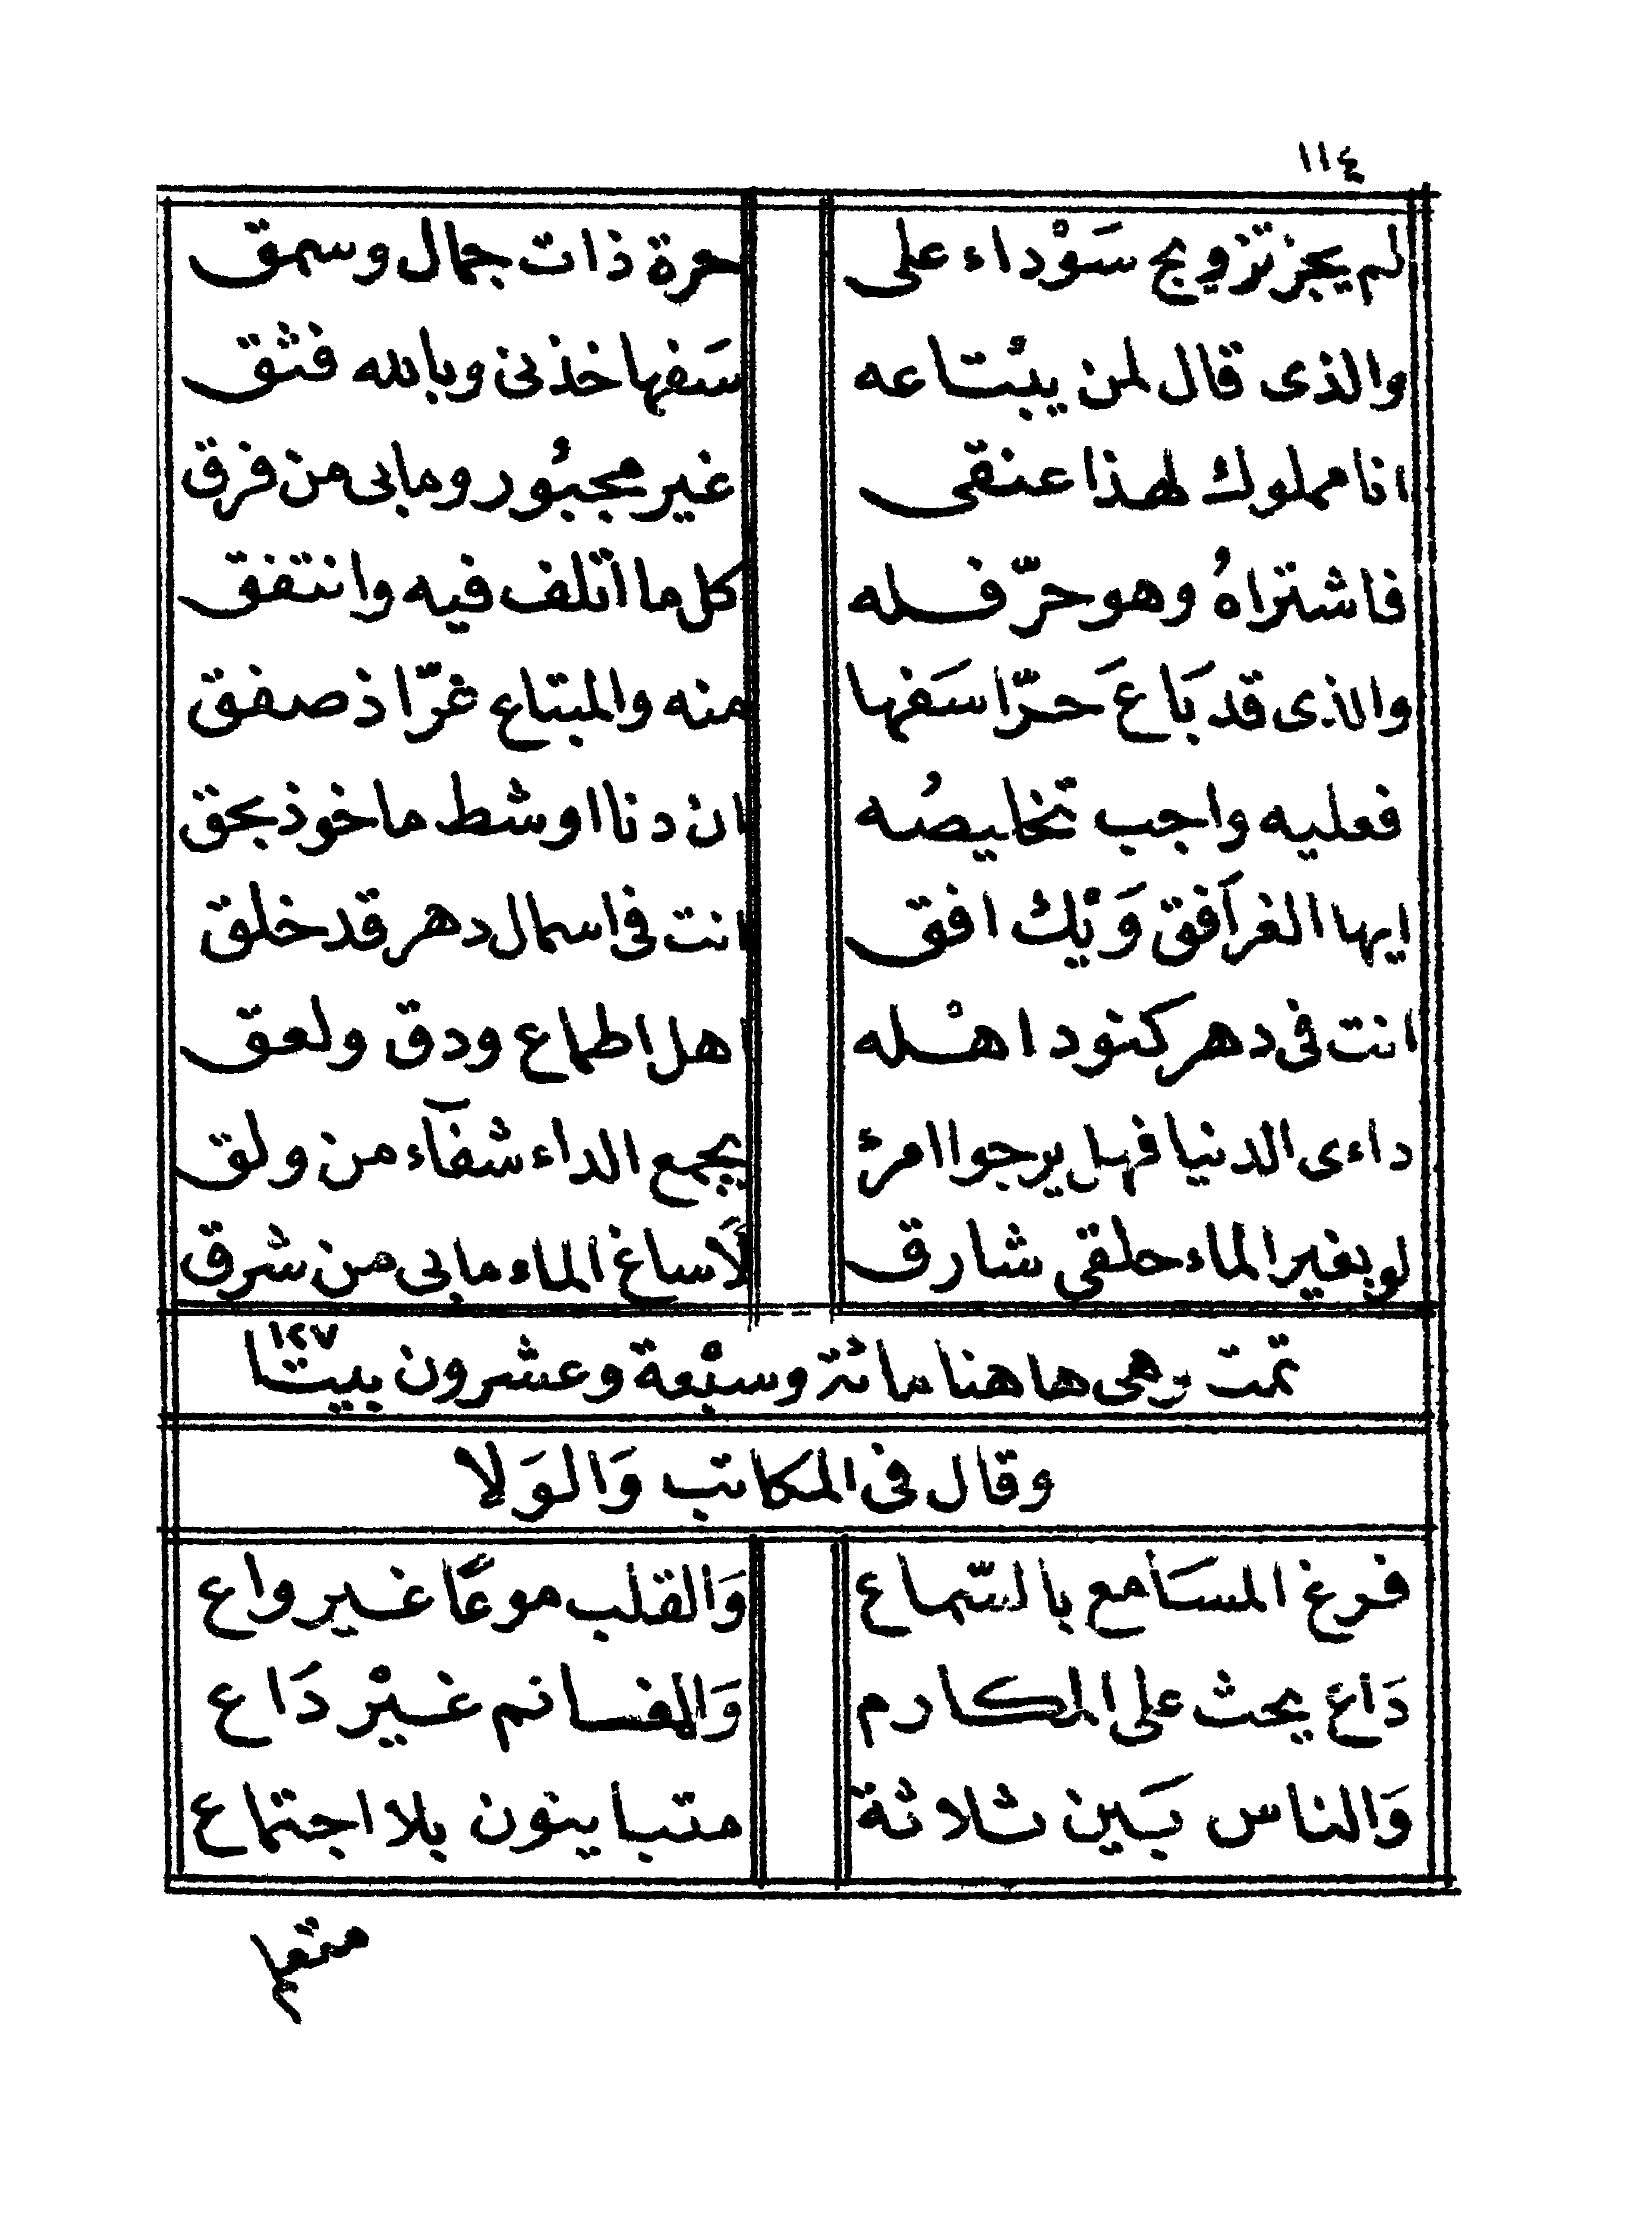 ١١٤
لم يجز تزويج سَوْداء على حرة ذات جمال وسمق
والذى قال لمن يبْتاعه سَفها خذنى وبالله فثق
انا مملوك لهذا عنقى غير مجبُور ومابى من فرق
فاشتراهُ وهو حرّ فله كل ما اتلف فيه وانتفق
والذى قد بَاعَ حرّا سَفها منه والمبتاع غرّا ذ صفق
فعليه واجب تخليصُه ان دنا اوشط ماخوذ بحق
ايها الغر اَفق وَيْك افق انت فى اسمال دهر قد خلق
انت فى دهر كنود اهْله اهل اطماع ودق ولعق
داءى الدنيا فهل يرجوا امرئ يجمع الداء شفآء من ولق
لو بغير الماء حلقى شارق لَاساغ الماء مابى من شرق
تمت وهى هاهنا مائة وسبْعة وعشرون بيتا ١٢٧
وقال فى المكاتب وَالوَلا
فرغ المسَامع بالسّماع وَالقلب موعًا غير واع
دَاع يحث على المكارم وَالمفسانم غيْر دَاع
وَالناس بَين ثلاثة متباينون بلا اجتماع